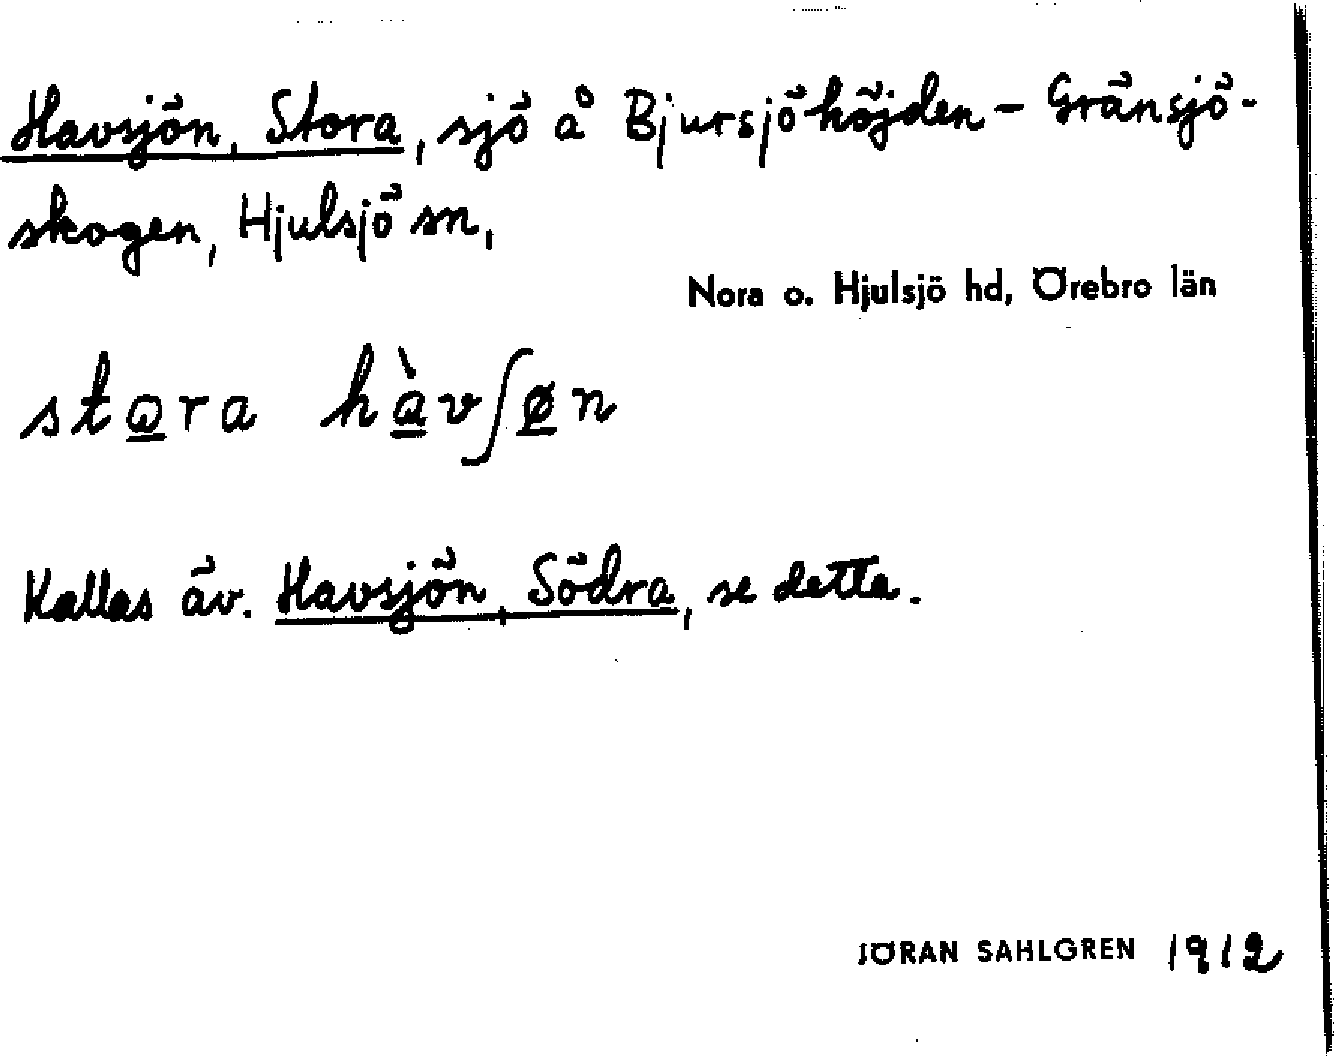 Havsjön, Stora, sjö å Bjursjöhöjden - Gränsjö-
skogen, Hjulsjö sn,
Nora o. Hjulsjö hd, Örebro län
stɷ̲ra hà̲vʃø̲n
Kallas äv. Havsjön, Södra, se detta.
JÖRAN SAHLGREN 1912